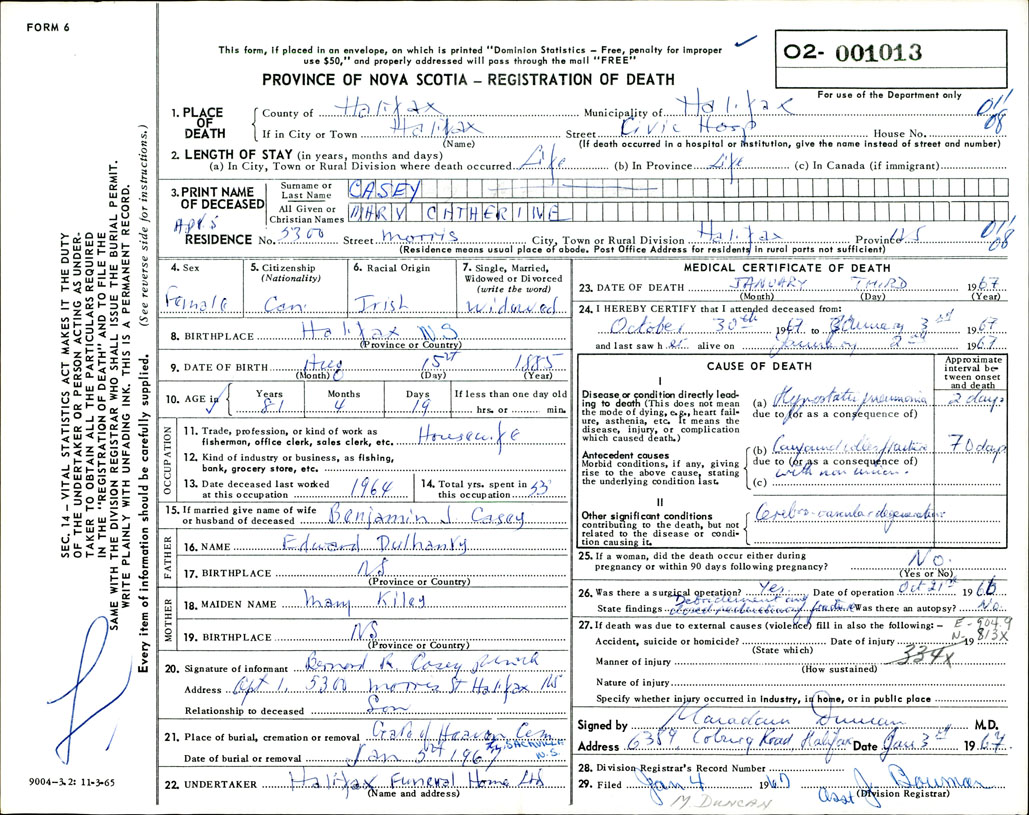 FORM 6
This form, if placed in an envelope, on which is printed "Dominion Statistics – Free, penalty for improper
use $50," and properly addressed will pass through the mail "FREE"
O2- 001013
For use of the Department only
PROVINCE OF NOVA SCOTIA – REGISTRATION OF DEATH
1. PLACE OF DEATH
County of Halifax Municipality of Halifax 011
If in City or Town Halifax Street Civic Hosp House No. 08
(Name) (If death occurred in a hospital or institution, give the name instead of street and number)
2. LENGTH OF STAY (in years, months and days)
(a) In City, Town or Rural Division where death occurred Life (b) In Province Life (c) In Canada (if immigrant)
3. PRINT NAME OF DECEASED
Surname or Last Name CASEY
All Given or Christian Names MARY CATHERINE
RESIDENCE No. 5300 Street Morris City, Town or Rural Division Halifax Province NS 011
08
(Residence means usual place of abode. Post Office Address for residents in rural parts not sufficient)
4. Sex Female
5. Citizenship (Nationality) Can
6. Racial Origin Irish
7. Single, Married, Widowed or Divorced (write the word) Widowed
8. BIRTHPLACE Halifax N.S
(Province or Country)
9. DATE OF BIRTH Aug 15 1885
(Month) (Day) (Year)
10. AGE in Years 81 Months 4 Days 19 If less than one day old
hrs. or min.
OCCUPATION
11. Trade, profession, or kind of work as
fisherman, office clerk, sales clerk, etc. Housewife
12. Kind of industry or business, as fishing,
bank, grocery store, etc.
13. Date deceased last worked
at this occupation 1964
14. Total yrs. spent in
this occupation 53
15. If married give name of wife
or husband of deceased Benjamin J Casey
FATHER
16. NAME Edward Dulhanty
17. BIRTHPLACE NS
(Province or Country)
MOTHER
18. MAIDEN NAME Mary Kiley
19. BIRTHPLACE NS
(Province or Country)
20. Signature of informant Bernard R. Casey
Address Apt 1, 5300 Morris St Halifax NS
Relationship to deceased Son
21. Place of burial, cremation or removal Gate of Heaven Cem
SACKVILLE N.S.
Date of burial or removal Jan 5 1967
22. UNDERTAKER Halifax Funeral Home Ltd
(Name and address)
MEDICAL CERTIFICATE OF DEATH
23. DATE OF DEATH JANUARY THIRD 1967
(Month) (Day) (Year)
24. I HEREBY CERTIFY that I attended deceased from:
October 30th 1967 to January 3rd 1967
and last saw her alive on January 2nd 1967
CAUSE OF DEATH
Approximate interval between onset and death
I
Disease or condition directly leading to death (This does not mean the mode of dying, e.g., heart failure, asthenia, etc. It means the disease, injury, or complication which caused death.)
(a) Hypostatic pneumonia 2 days
due to (or as a consequence of)
Antecedent causes
Morbid conditions, if any, giving rise to the above cause, stating the underlying condition last.
(b) Compound fracture 70 days
due to (or as a consequence of)
with non union
(c)
II
Other significant conditions
contributing to the death, but not related to the disease or condition causing it.
Cerebro-vascular degeneration
25. If a woman, did the death occur either during
pregnancy or within 90 days following pregnancy? No.
(Yes or No)
26. Was there a surgical operation? Yes Date of operation Oct 21st 1966
State findings Debridement any fracture Was there an autopsy? No.
27. If death was due to external causes (violence) fill in also the following: – E-904.9
Accident, suicide or homicide? Date of injury 19 N-813X
(State which)
334X
Manner of injury
(How sustained)
Nature of injury
Specify whether injury occurred in industry, in home, or in public place
Signed by Duncan M.D.
Address 6389 Coburg Road Halifax Date Jan 3rd 1967
28. Division Registrar's Record Number
29. Filed Jan 4 1967 Asst J Bowman
(Division Registrar)
M DUNCAN
SEC. 14 – VITAL STATISTICS ACT MAKES IT THE DUTY
OF THE UNDERTAKER OR PERSON ACTING AS UNDER-
TAKER TO OBTAIN ALL THE PARTICULARS REQUIRED
IN THE "REGISTRATION OF DEATH" AND TO FILE THE
SAME WITH THE DIVISION REGISTRAR WHO SHALL ISSUE THE BURIAL PERMIT.
WRITE PLAINLY WITH UNFADING INK. THIS IS A PERMANENT RECORD.
Every item of information should be carefully supplied. (See reverse side for instructions.)
9004-3.2: 11-3-65